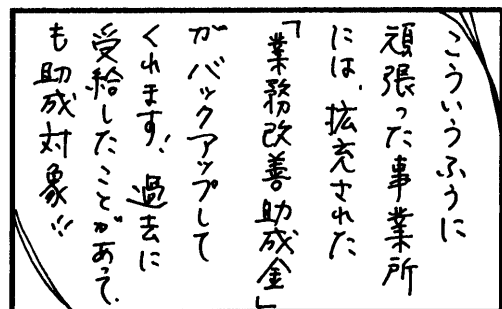 こういうふうに
頑張った事業所
には、拡充された
「業務改善助成金」
がバックアップして
くれます！過去に
受給したことがあって、
も助成対象!!